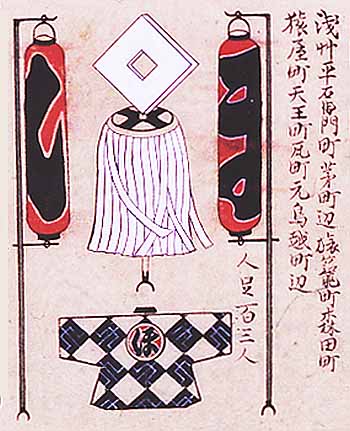 浅艸平右衛門町茅町辺旅籠町森田町
猿屋町天王町瓦町元鳥越町辺
人足百三人
ほ